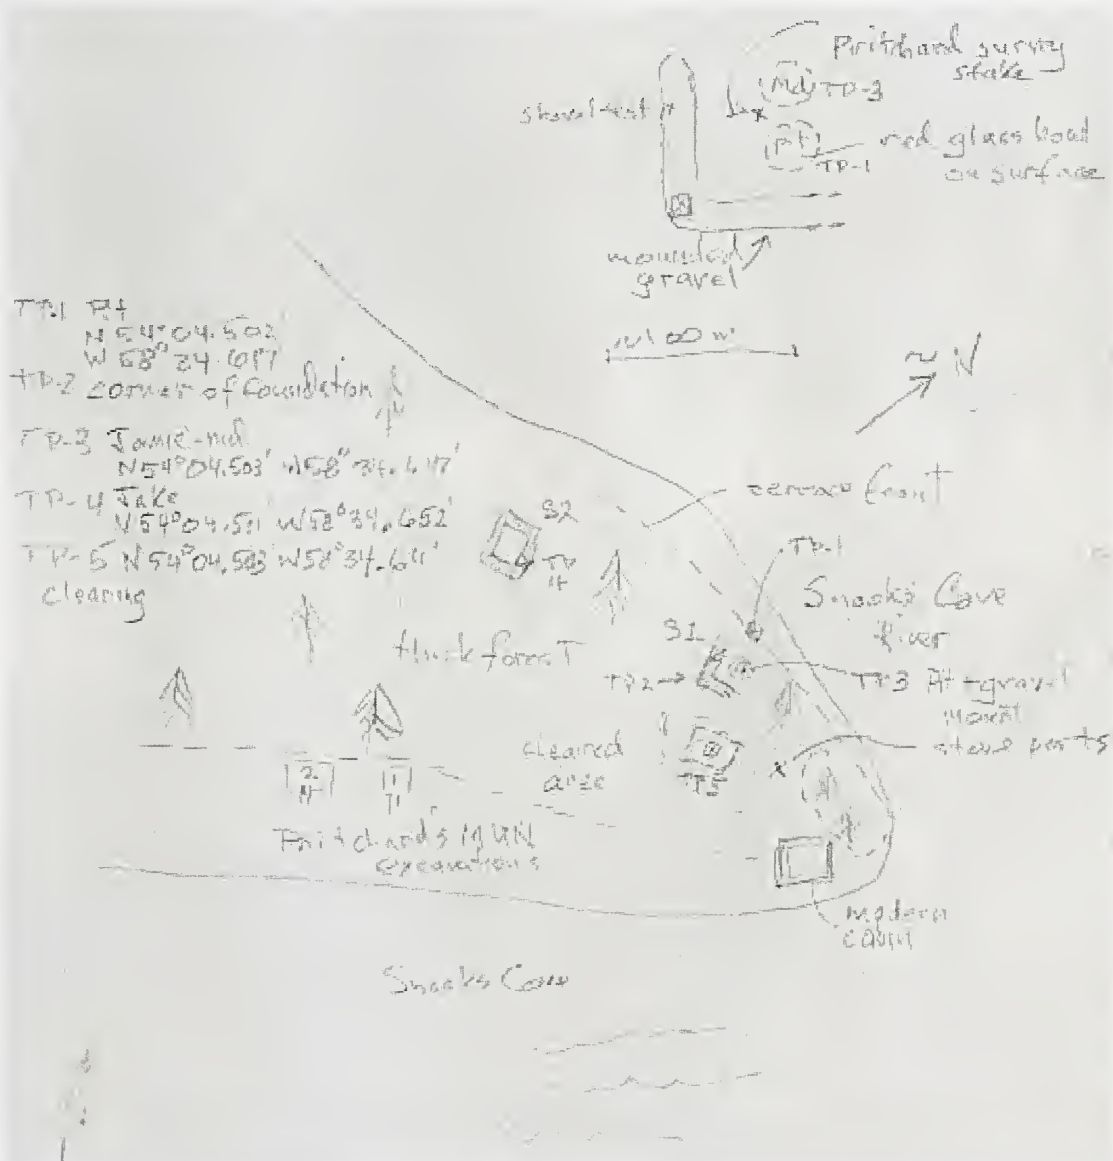 Pritchard survey
stake
shovel test
Md TP-3
pit
TP-1
red glass bead
on surface
mounded
gravel
~100 m
~ N
TP-1 Pit
N 54°04.502'
TP-2 corner of foundation
TP-3 Jamie-md
N54°04.503' W58°34.647'
TP-4 Jake
W58°34.652'
TP-5 N54°04.503' W58°34.641'
clearing
terrace front
S2
TP
4
TP-1
Snooks Cove
River
S1
thick forest
TP2
TP3 Pit + gravel
Mound
stove parts
cleared
area
T5
2
1
Pritchard's MUN
excavations
modern
cabin
Snooks Cove